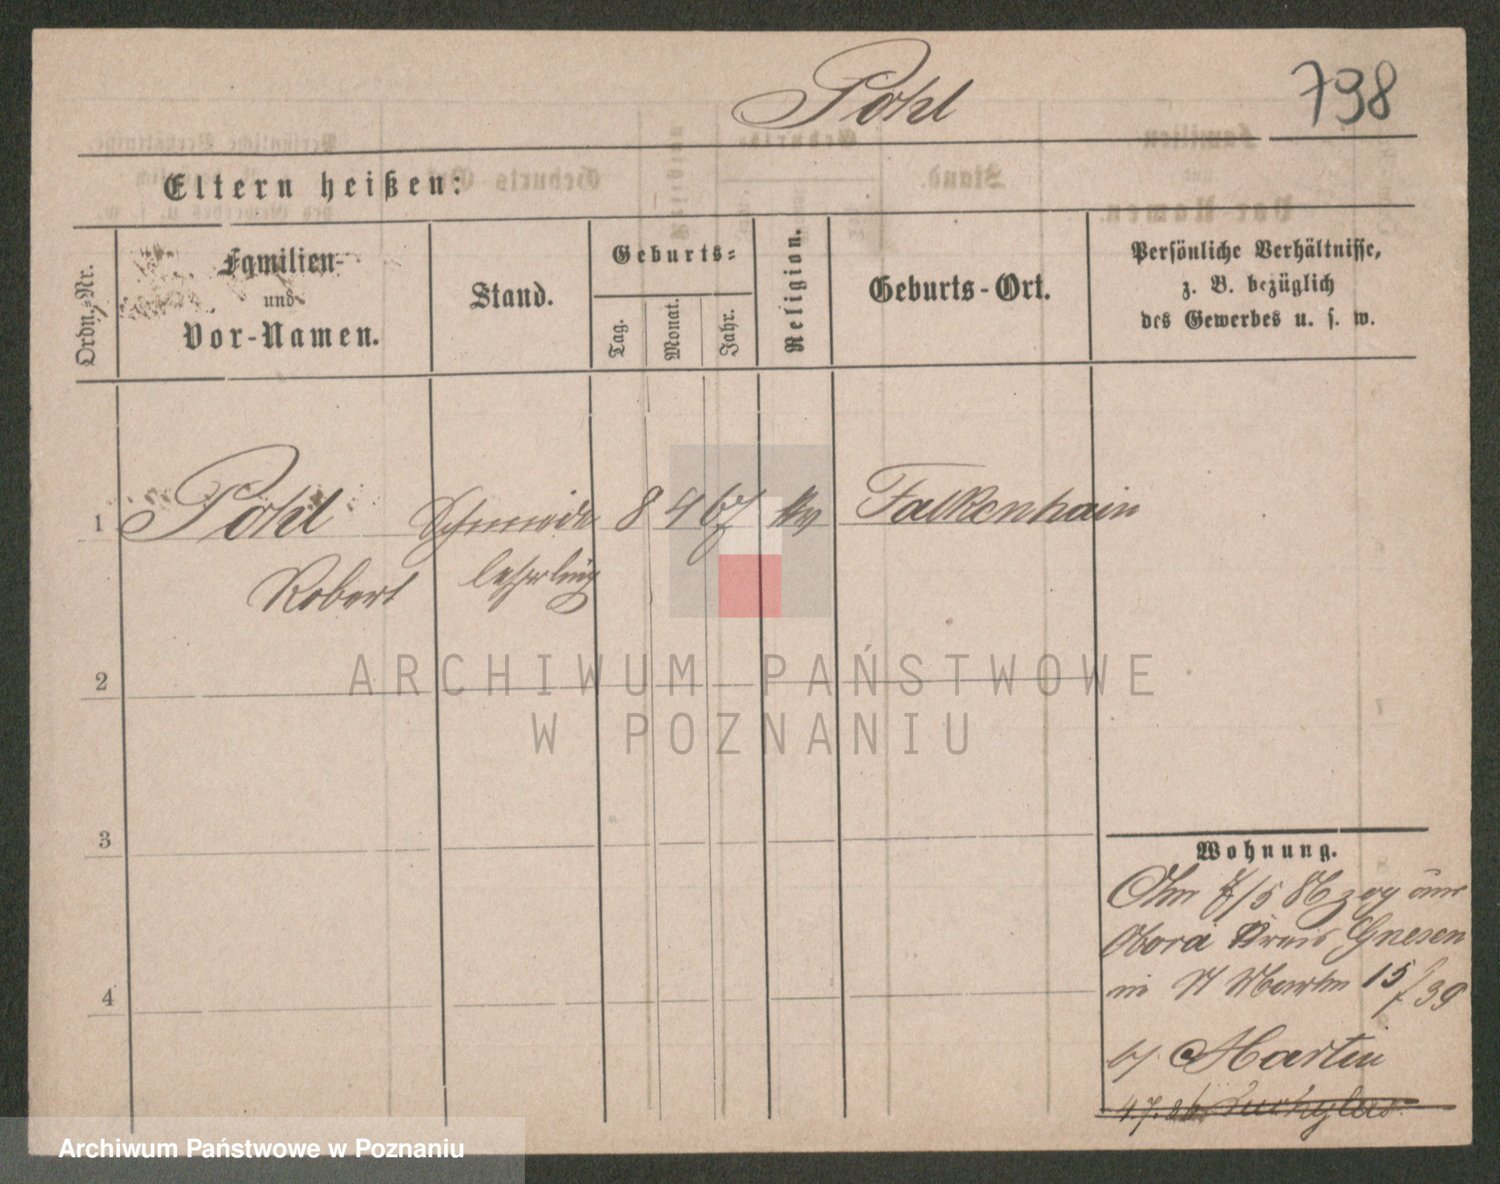 Pohl
798
Eltern heißen:
Ordn.-Nr.
Familien-
und
Vor-Namen.
Stand.
Geburts-
Tag.
Monat.
Jahr.
Religion.
Geburts-Ort.
Persönliche Verhältnisse,
z. B. bezüglich
des Gewerbes u. s. w.
1 Pohl Schmiede 8 4 67 kv Falkenhain
Robert lehrling
2
3
4
Wohnung.
Obora Kreis Gnesen
in St Martin 15/ 39
b/ Martin
ARCHIWUM PAŃSTWOWE
W POZNANIU
Archiwum Państwowe w Poznaniu